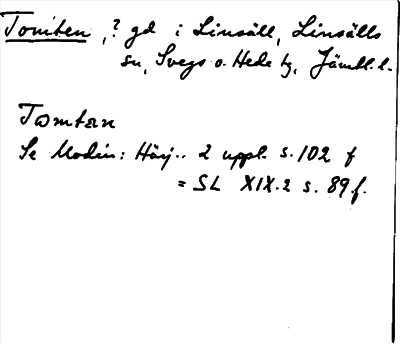 Tomten, ? gd i Linsäll, Linsälls
sn, Svegs o. Hede tg, Jämtl. l.
Tomtan
Se Modin: Härj.. 2 uppl. s. 102 f
= SL XIX.2 s. 89 f.